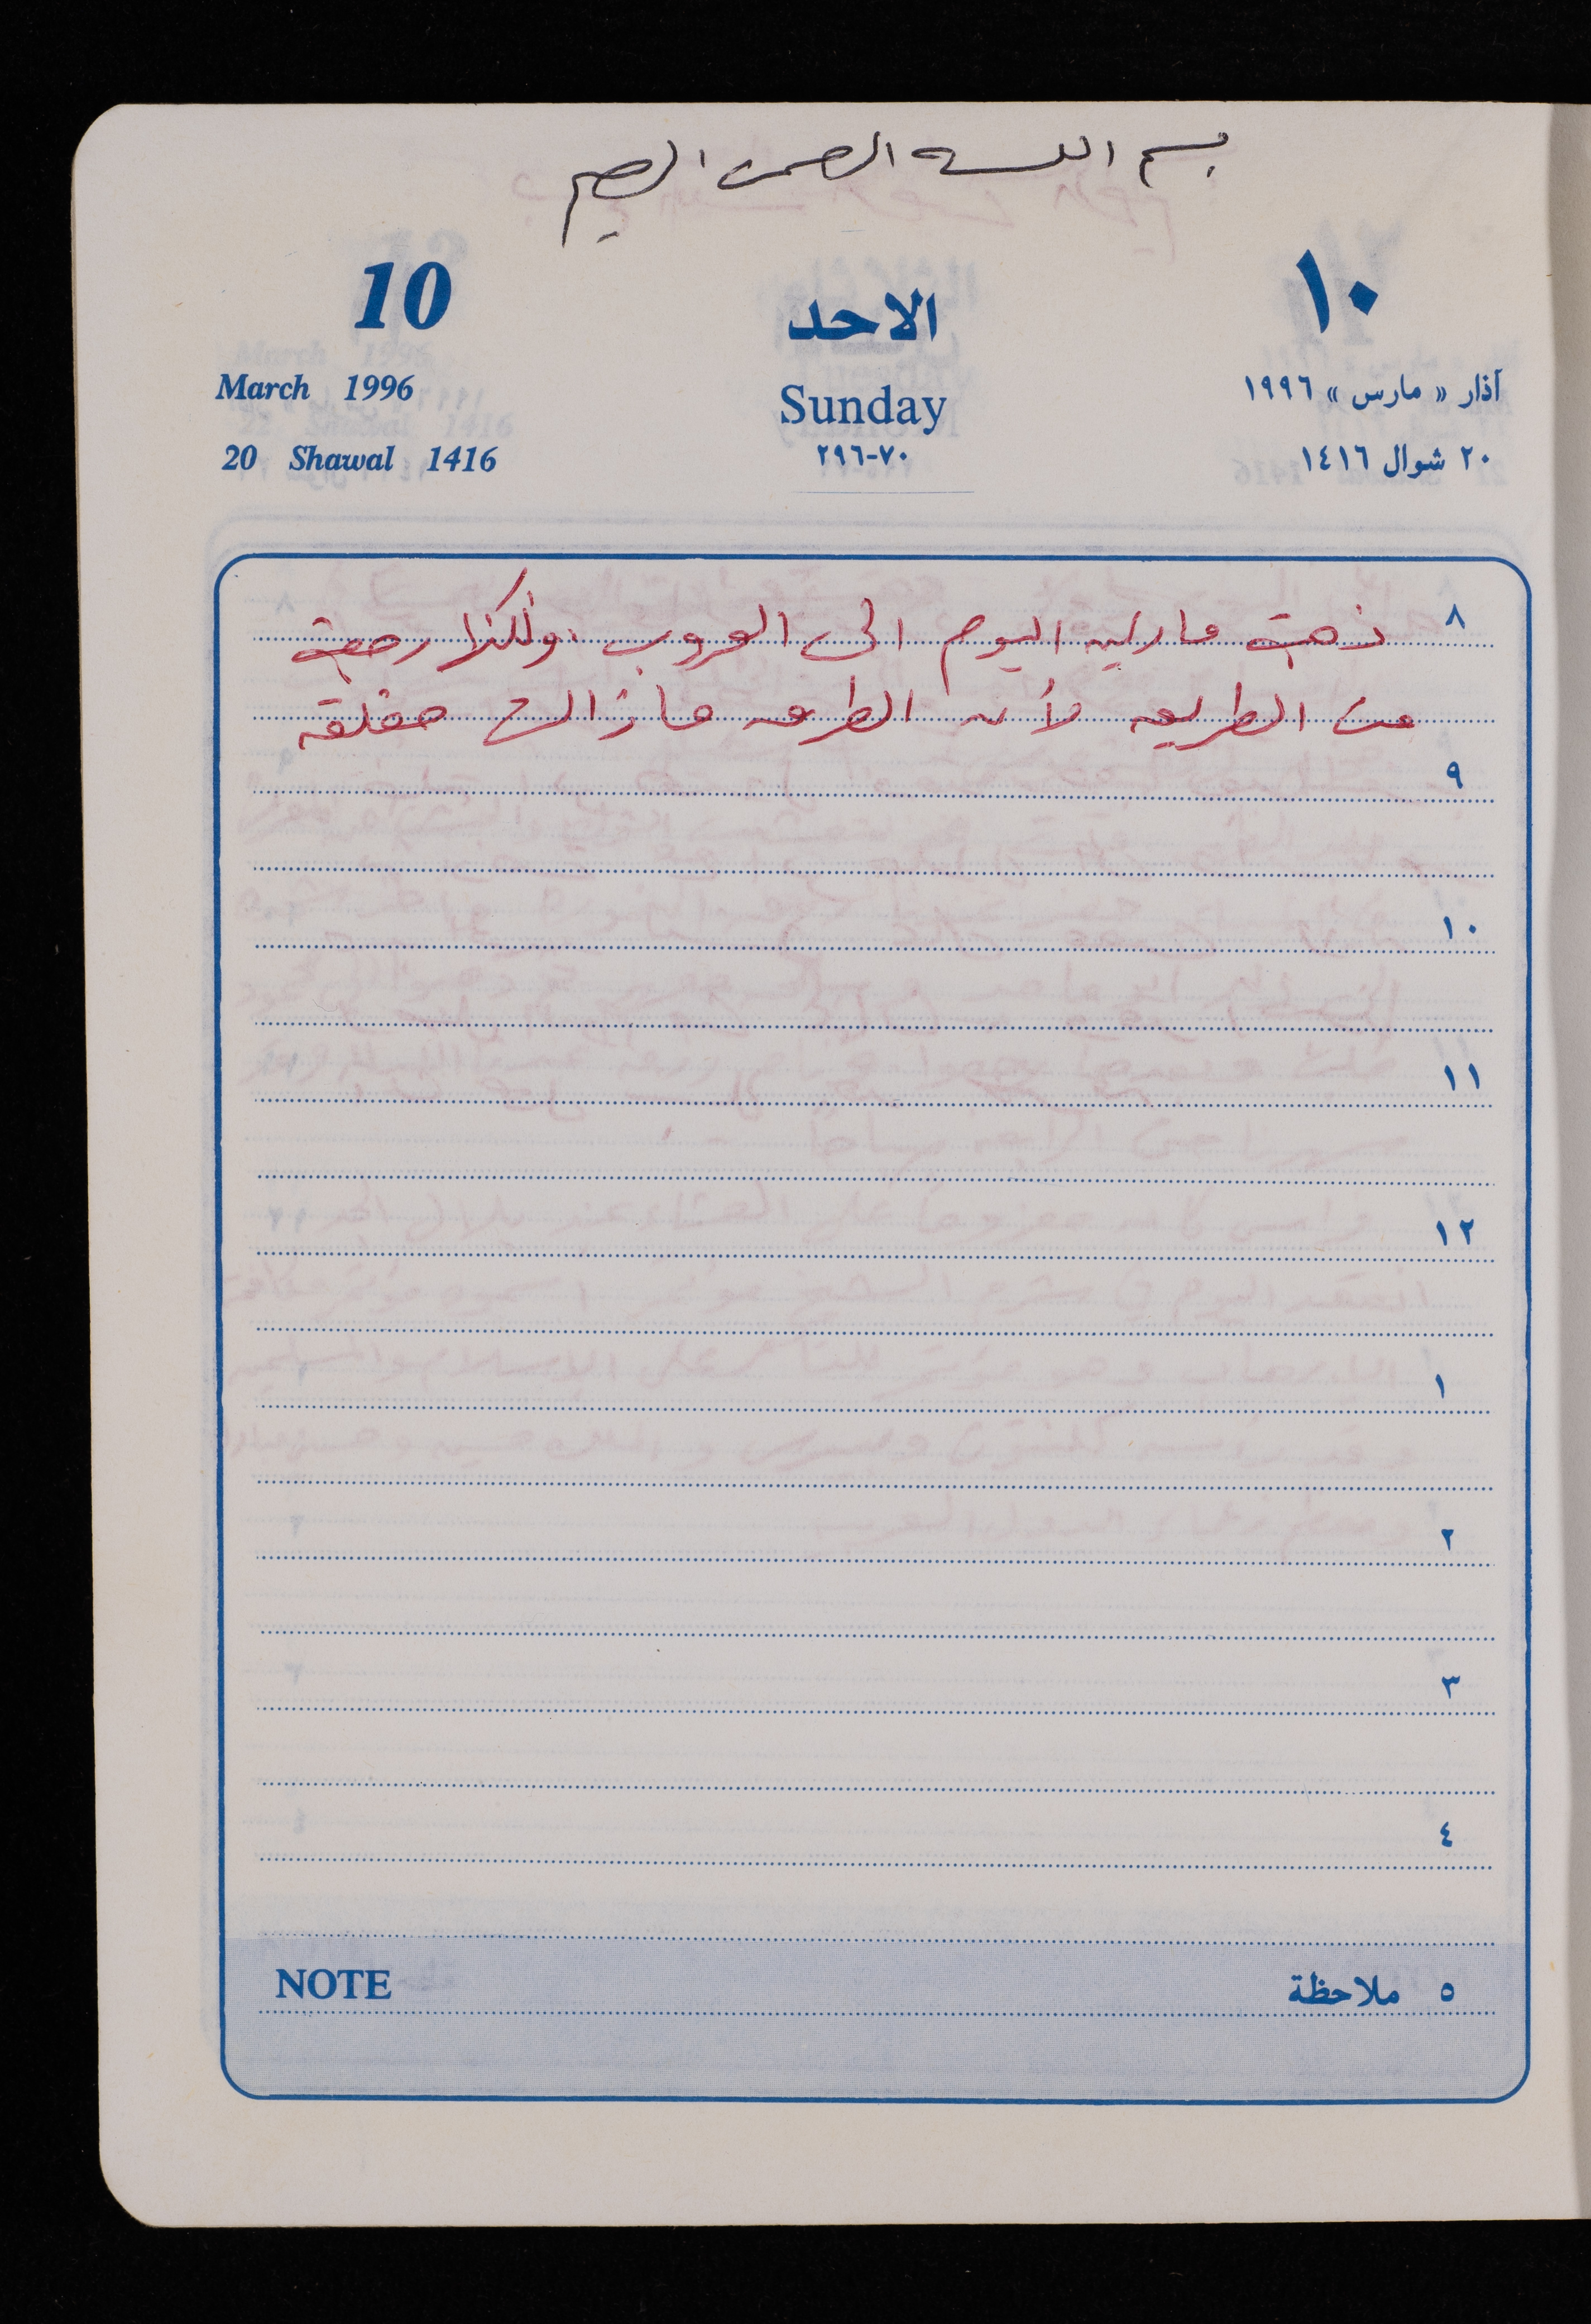 بسم الله الرحمن الرحيم
10
الاحد
١٠
March 1996
Sunday
آذار « مارس » ١٩٩٦
20 Shawal 1416
٧٠-٢٩٦
٢٠ شوال ١٤١٦
٨
ذهبت مارلين اليوم الى العروب ولكنها رجعت
من الطريق لأن الطرق مازالت مغلقة
٩
١٠
١١
١٢
١
٢
٣
٤
NOTE
٥ ملاحظة